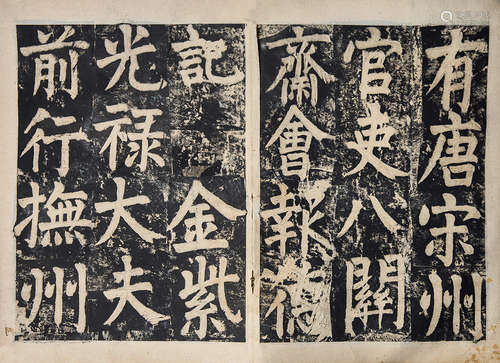 有唐宋州
官吏八關
齋會報德
記 金紫
光禄大夫
前行撫州